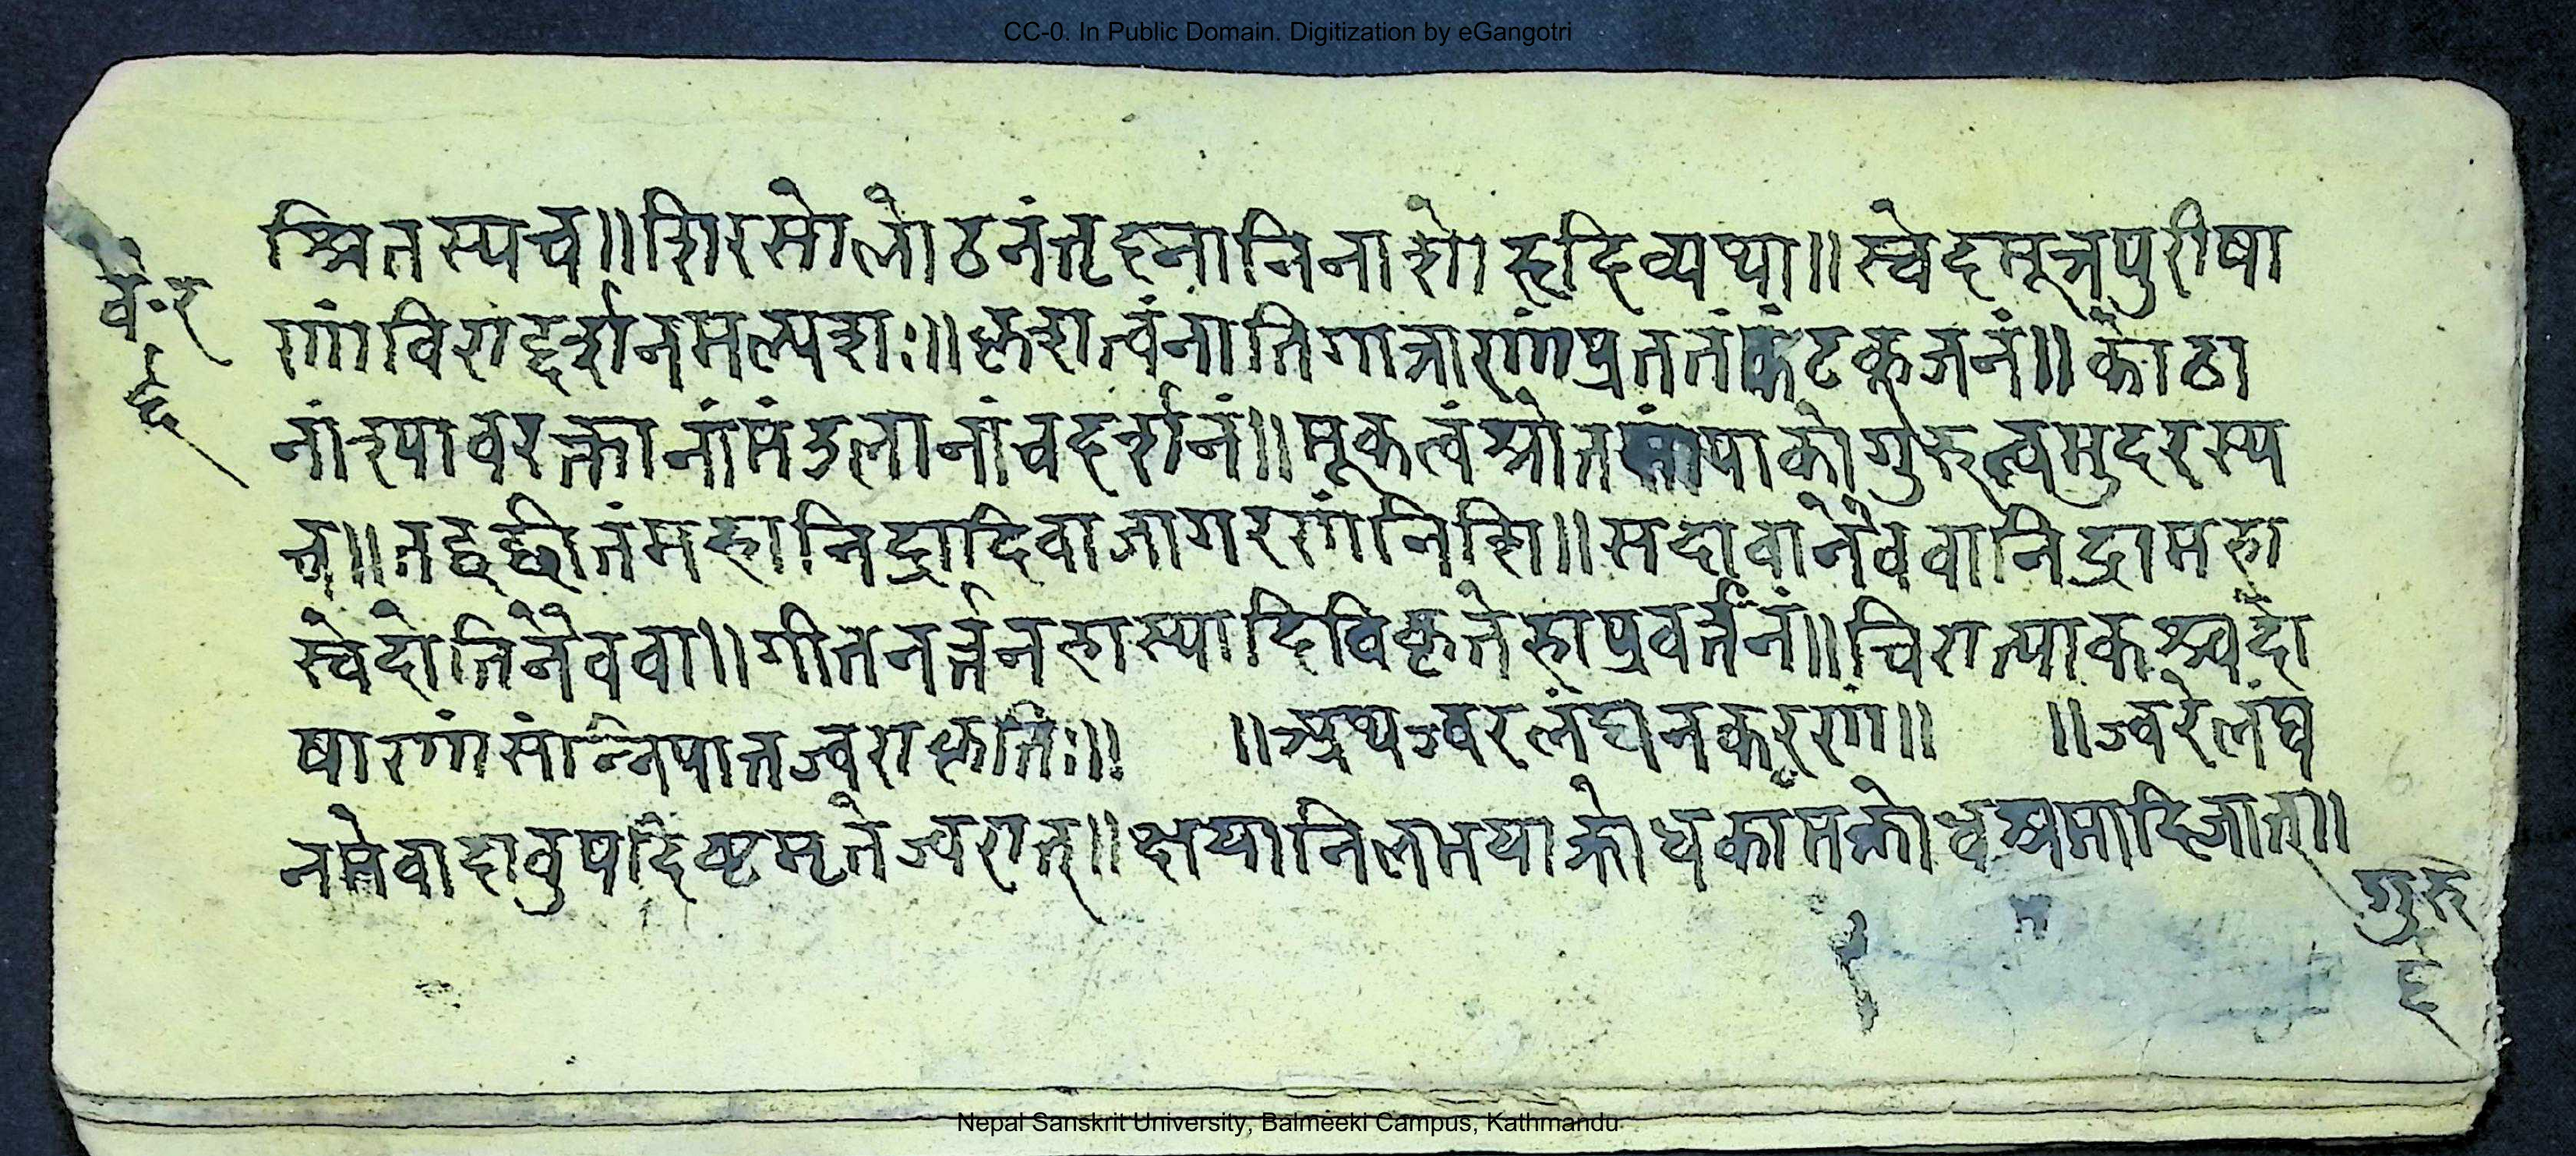 CC-0. In Public Domain. Digitization by eGangotri
श्रितस्यच॥शिरसोलोठनंतृह्नानिनाशोहृदिव्यथा॥स्वेदमूत्रपुरीषा
णांविराद्दर्शनमल्पशः॥कृशत्वंनातिगात्राणांप्रततंकंटकूजनं॥कोठा
नांश्यावरक्तानांमंडलानांचदर्शनं॥मूकत्वंश्रोतसांपाकोगुरुत्वमुदरस्य
च॥तद्वछीतंमहानिद्रादिवाजागरणंनिशि॥सदावानैववानिद्रामहा
स्वेदोतिनैववा॥गीतनर्त्तनहास्यादिविकृतेहाप्रवर्त्तनं॥चिरात्पाकश्चदो
षाणांसंन्निपातज्वराकृतिः॥ ॥अथज्वरलंघनकरणं॥ ॥ज्वरेलंघ
नमेवादावुपदिष्टमृतेज्वरात्॥क्षयानिलभयाक्रोधकामक्रोधश्रमादिजात॥
वै॰र
६
गुरु
६
Nepal Sanskrit University, Balmeeki Campus, Kathmandu